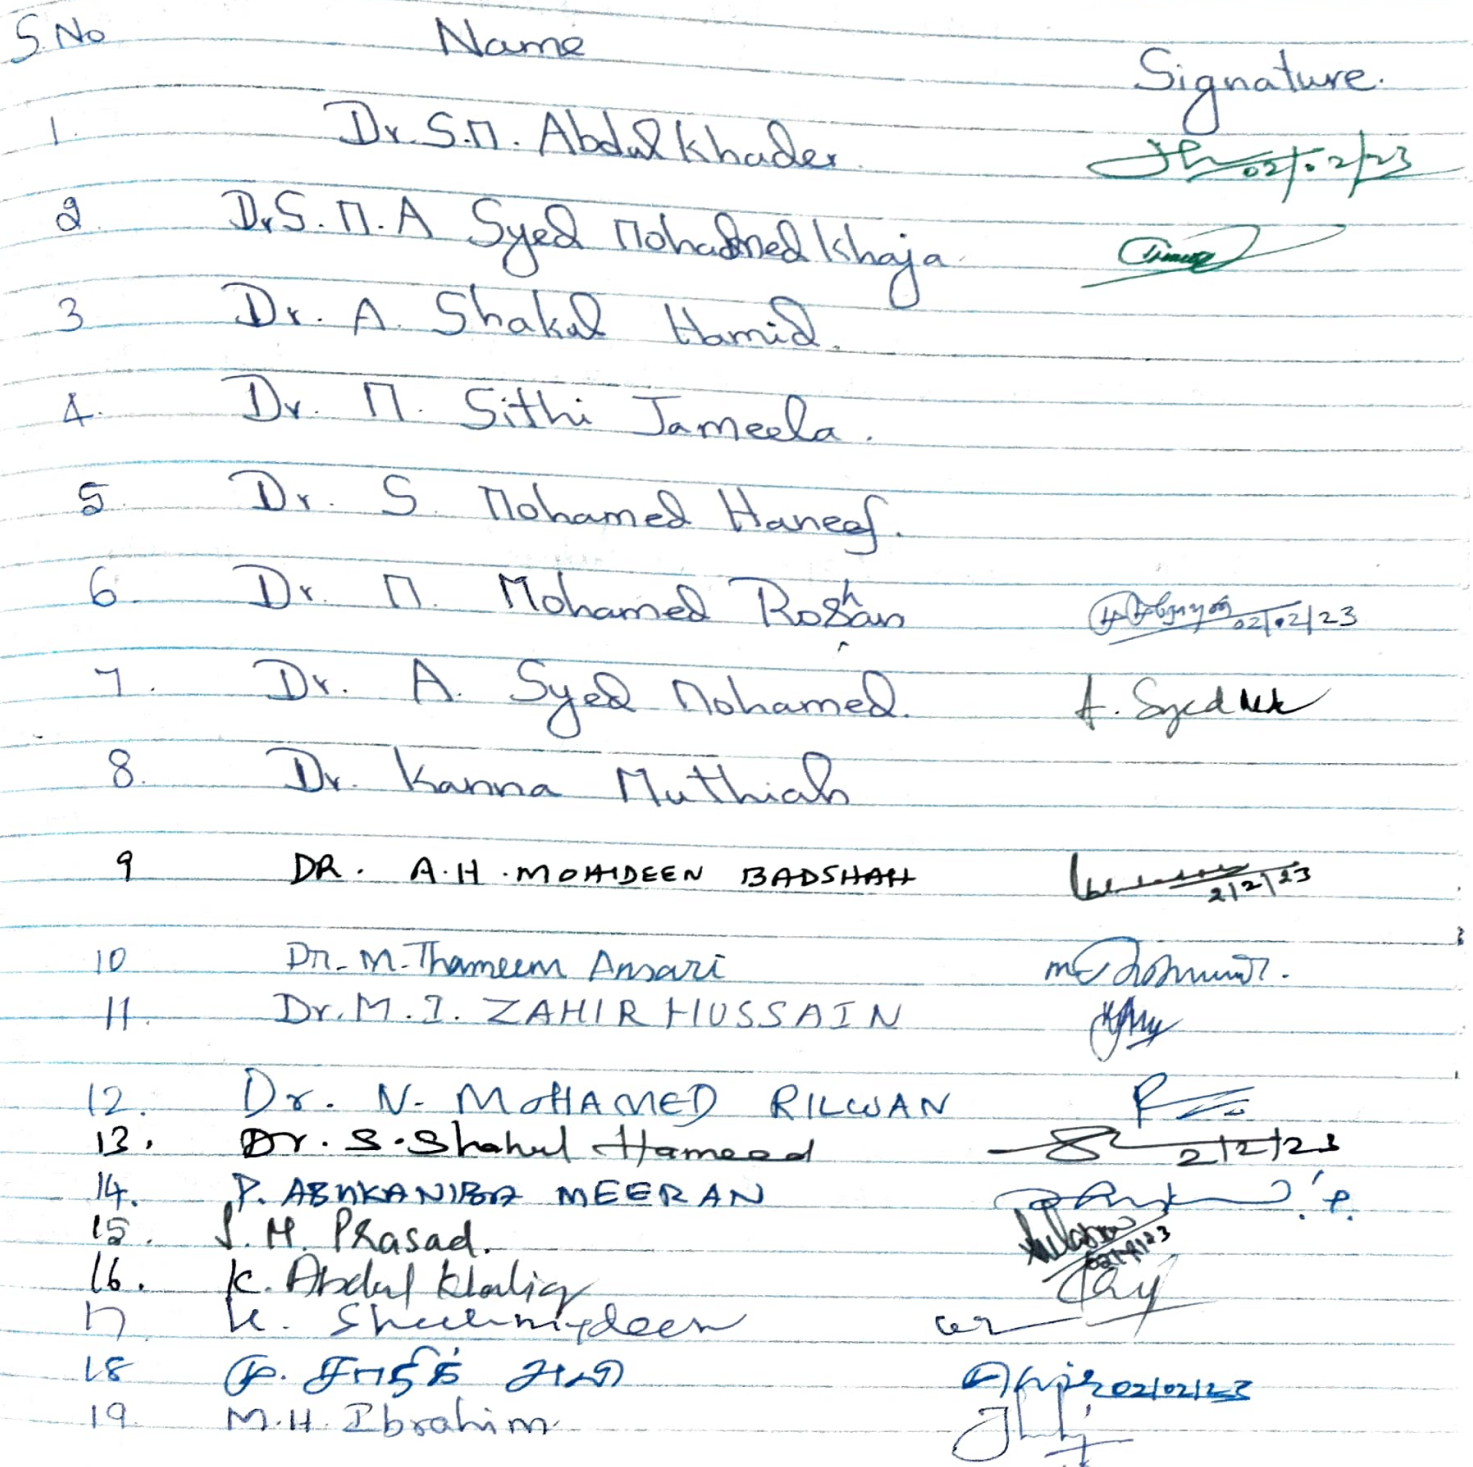 S.No Name Signature.
1. Dr. S.M. Abdul Khader 02/02/23
2 Dr S. M. A Syed Mohammed Khaja
3 Dr. A. Shakul Hamid.
4. Dr. M. Sithi Jameela.
5 Dr. S Mohamed Haneef.
6 Dr. M. Mohamed Roshan 02/02/23
7. Dr. A. Syed Mohamed. A. Syed
8. Dr. Kanna Muthiah
9 DR. A.H. MOHIDEEN BADSHAH 2/2/23
10 Dr. M. Thameem Ansari
11. Dr. M. I. ZAHIR HUSSAIN
12. Dr. N. MOHAMED RILWAN
13. Dr. S. Shahul Hameed 2/2/23
14. P. ABUKANIBA MEERAN
15. S. H. Prasad.
16. K. Abdul Khaliq
17 K.
18 மு. சாதிக் அலி 02/02/23
19. M.H. Ibrahim